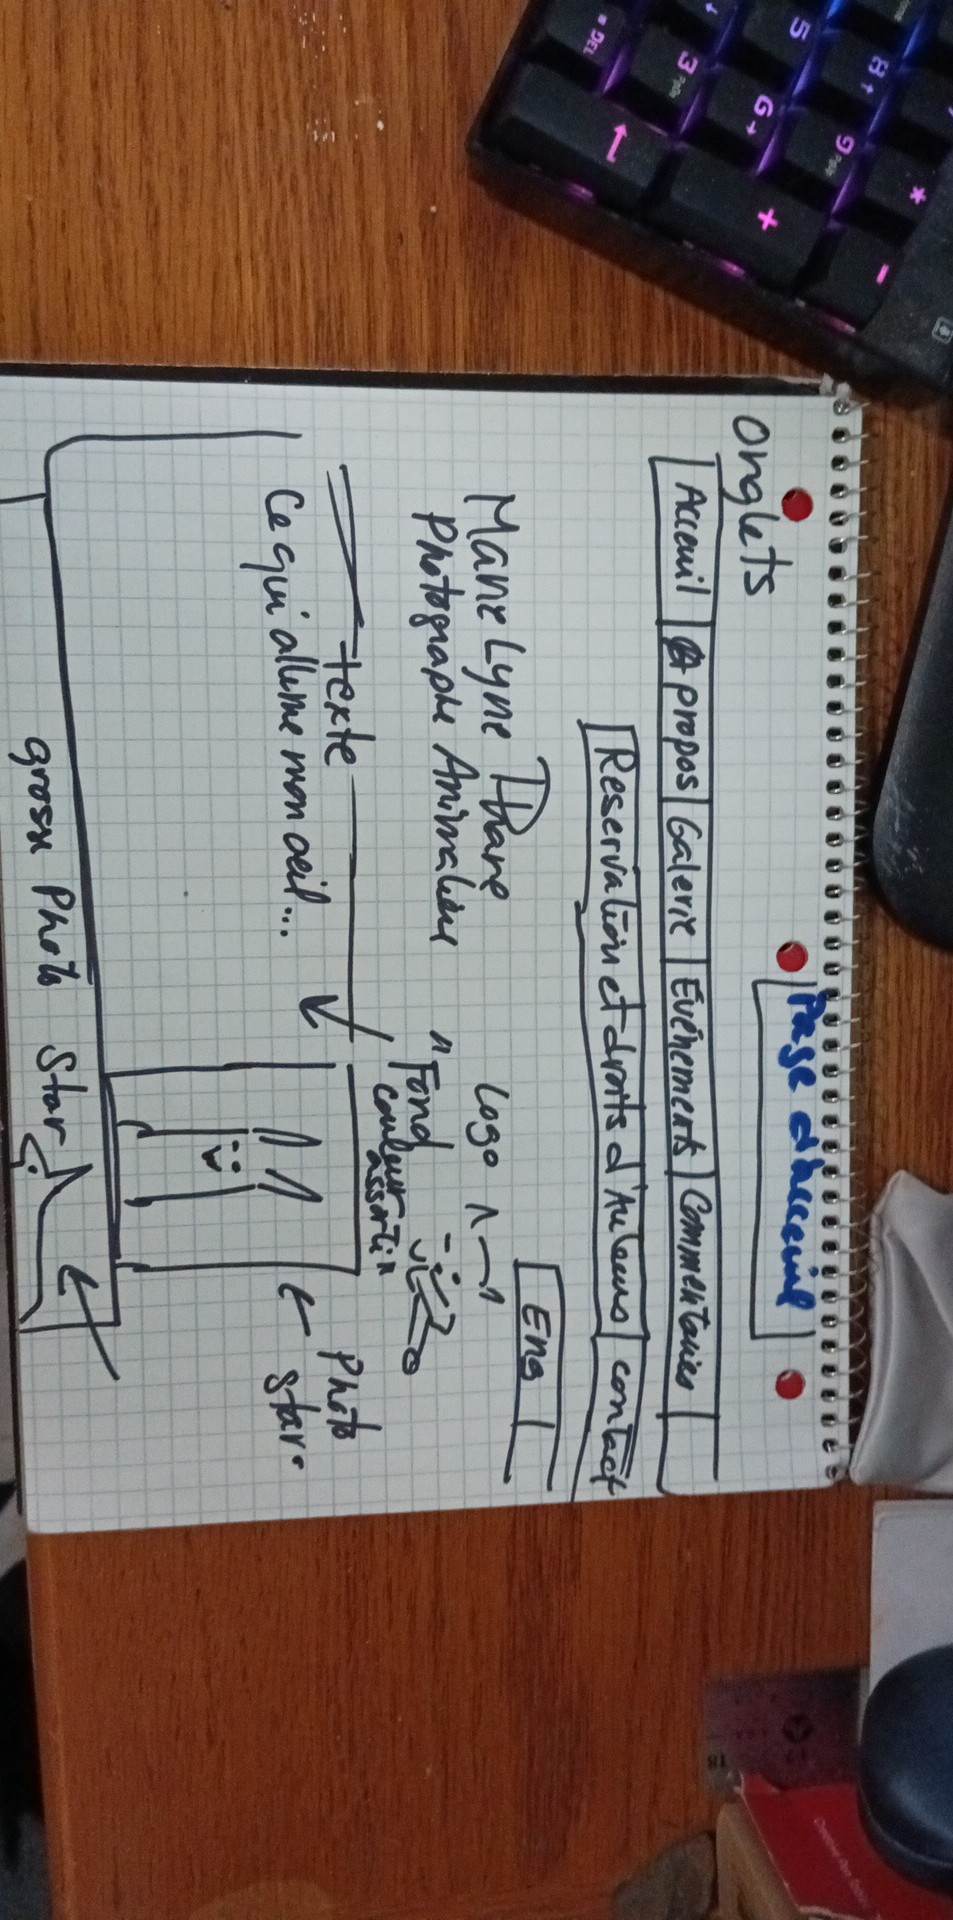 Page d'acceuil
Onglets
Acceuil A propos Galerie Evénements Commentaires
Reservation et droits d'Auteurs contact
Eng
Marie Lyne
Logo
Photographe Animalière
"Fond
couleur
assorti"
texte
Photo
star.
Ce qui allume mon oeil...
grosse Photo Star
* -
8 ↑
9 PgUp
5
6 → +
3 PgDn
DEL